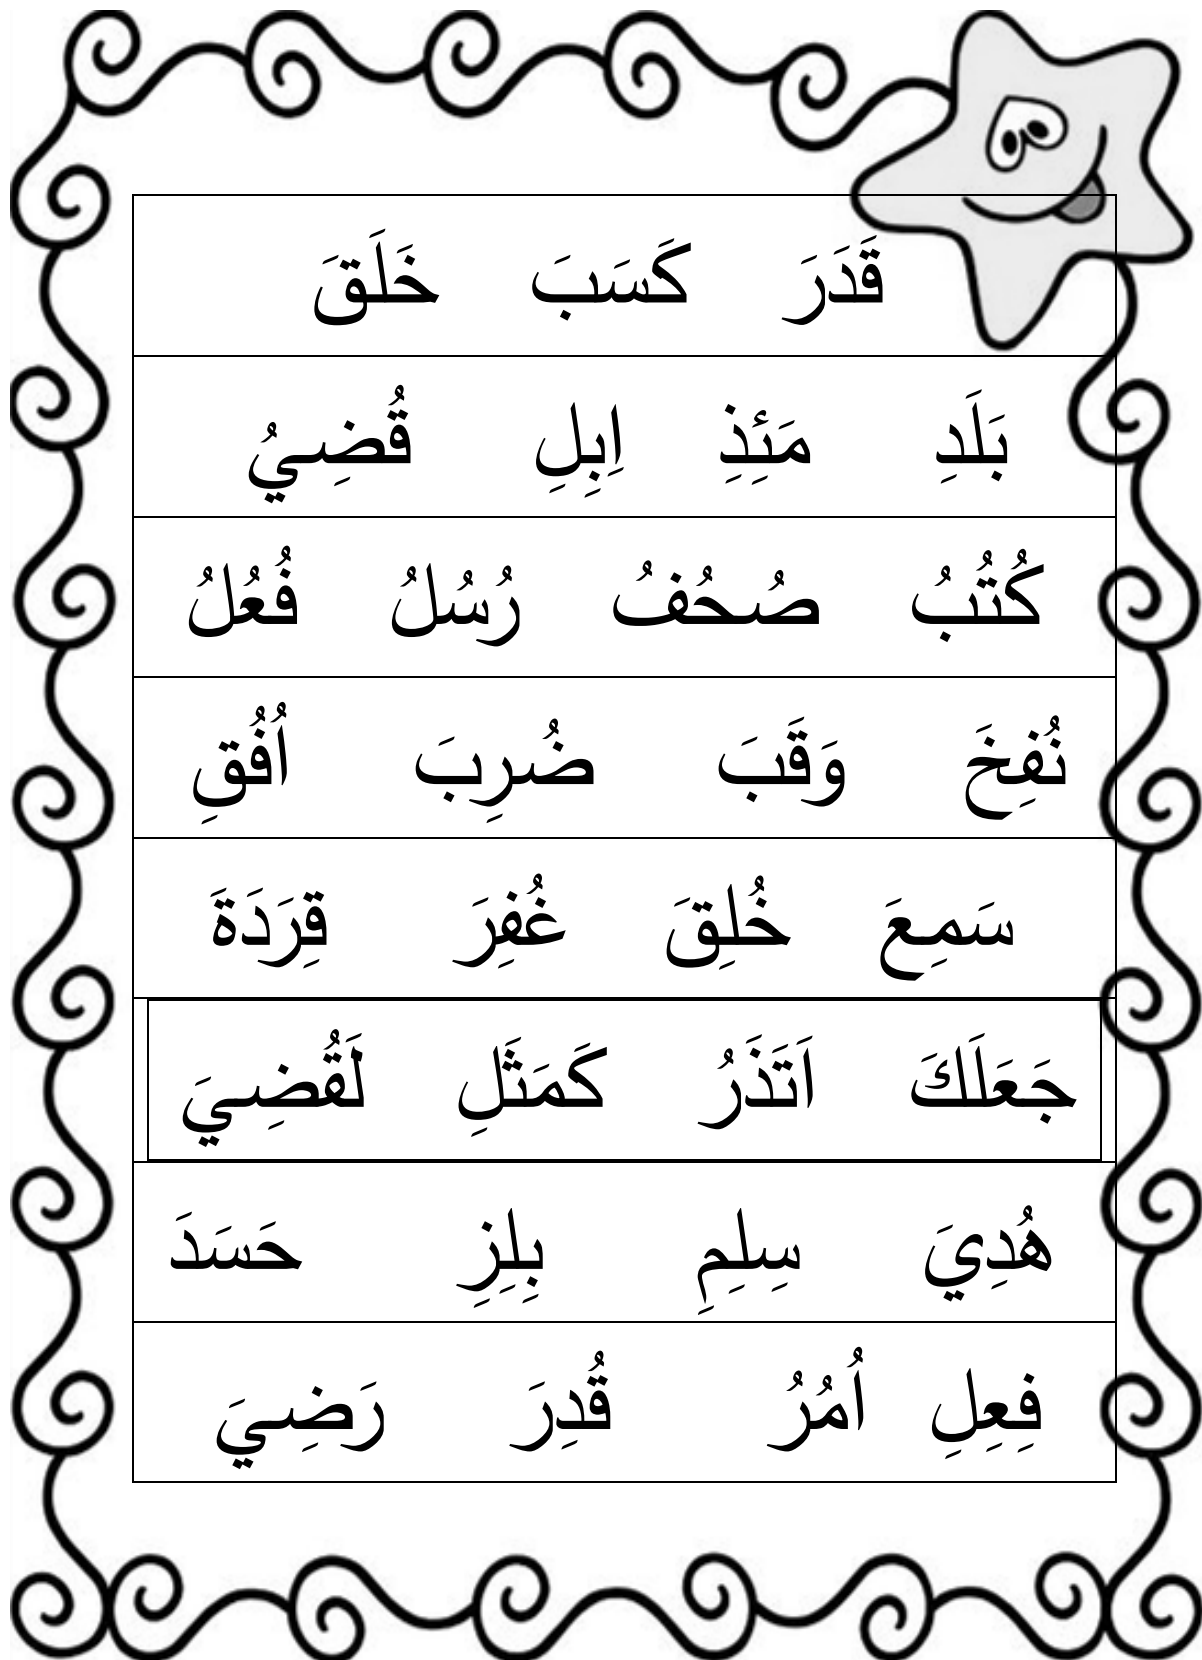 قَدَرَ كَسَبَ خَلَقَ
بَلَدِ مَئِذِ اِبِلِ قُضِيُ
كُتُبُ صُحُفُ رُسُلُ فُعُلُ
نُفِخَ وَقَبَ ضُرِبَ اُفُقِ
سَمِعَ خُلِقَ غُفِرَ قِرَدَةَ
جَعَلَكَ اَتَذَرُ كَمَثَلِ لَقُضِيَ
هُدِيَ سِلِمِ بِلِزِ حَسَدَ
فِعِلِ اُمُرُ قُدِرَ رَضِيَ